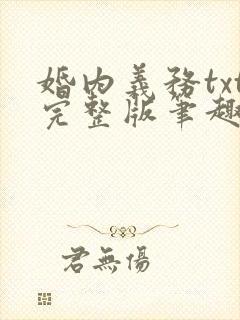 婚內義務txt
完整版筆趣
君無傷